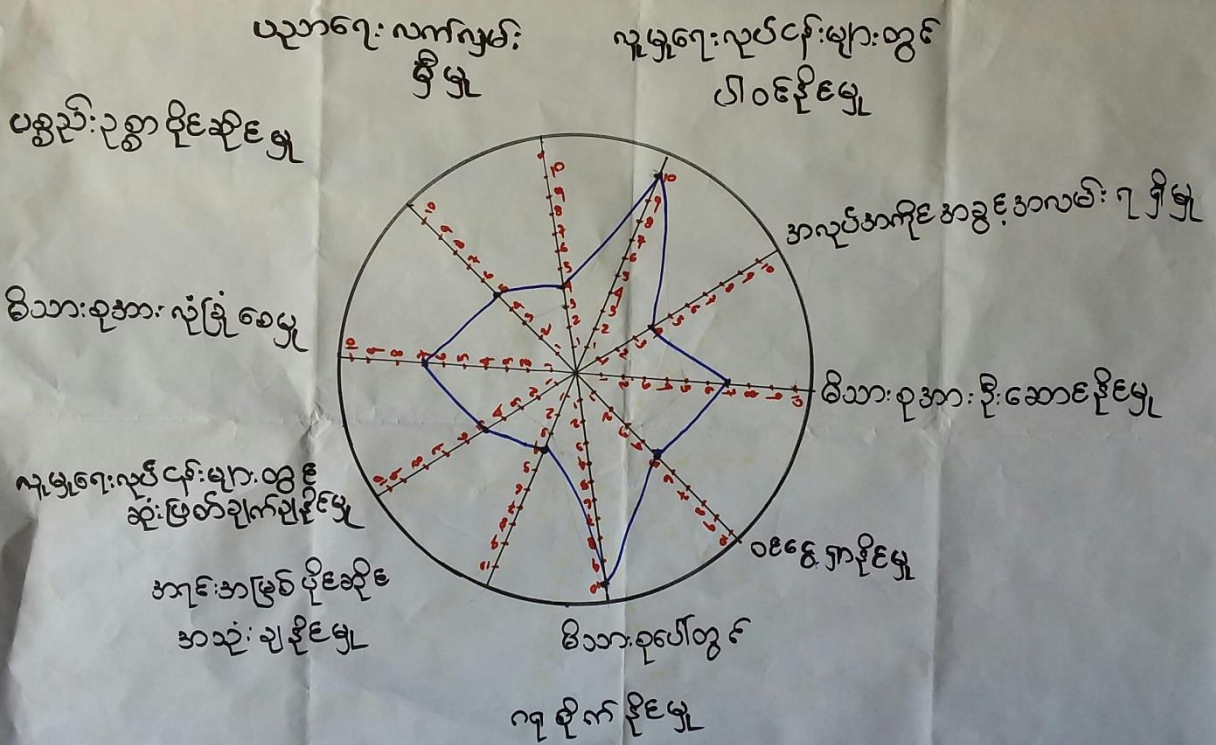 ပညာရေး လက်လှမ်း
မှီမှု
လူမှုရေးလုပ်ငန်းများတွင်
ပါဝင်နိုင်မှု
ပစ္စည်းဥစ္စာပိုင်ဆိုင်မှု
အလုပ်အကိုင်အခွင့်အလမ်း ရရှိမှု
မိသားစုအား လုံခြုံစေမှု
မိသားစုအား ဦးဆောင်နိုင်မှု
လူမှုရေးလုပ်ငန်းများတွင်
ဆုံးဖြတ်ချက်ချနိုင်မှု
ဝင်ငွေရှာနိုင်မှု
အရင်းအမြစ် ပိုင်ဆိုင်
အသုံးချနိုင်မှု
မိသားစုပေါ်တွင်
ဂရုစိုက်နိုင်မှု